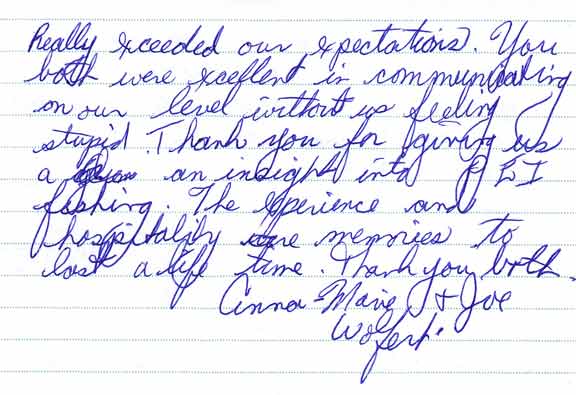 Really exceeded our expectations. You
both were excellent in communicating
on our level without us feeling
stupid. Thank you for giving us
a an insight into PEI
fishing. The experience and
hospitality are memories to
last a life time. Thank you both.
Anna-Marie & Joe